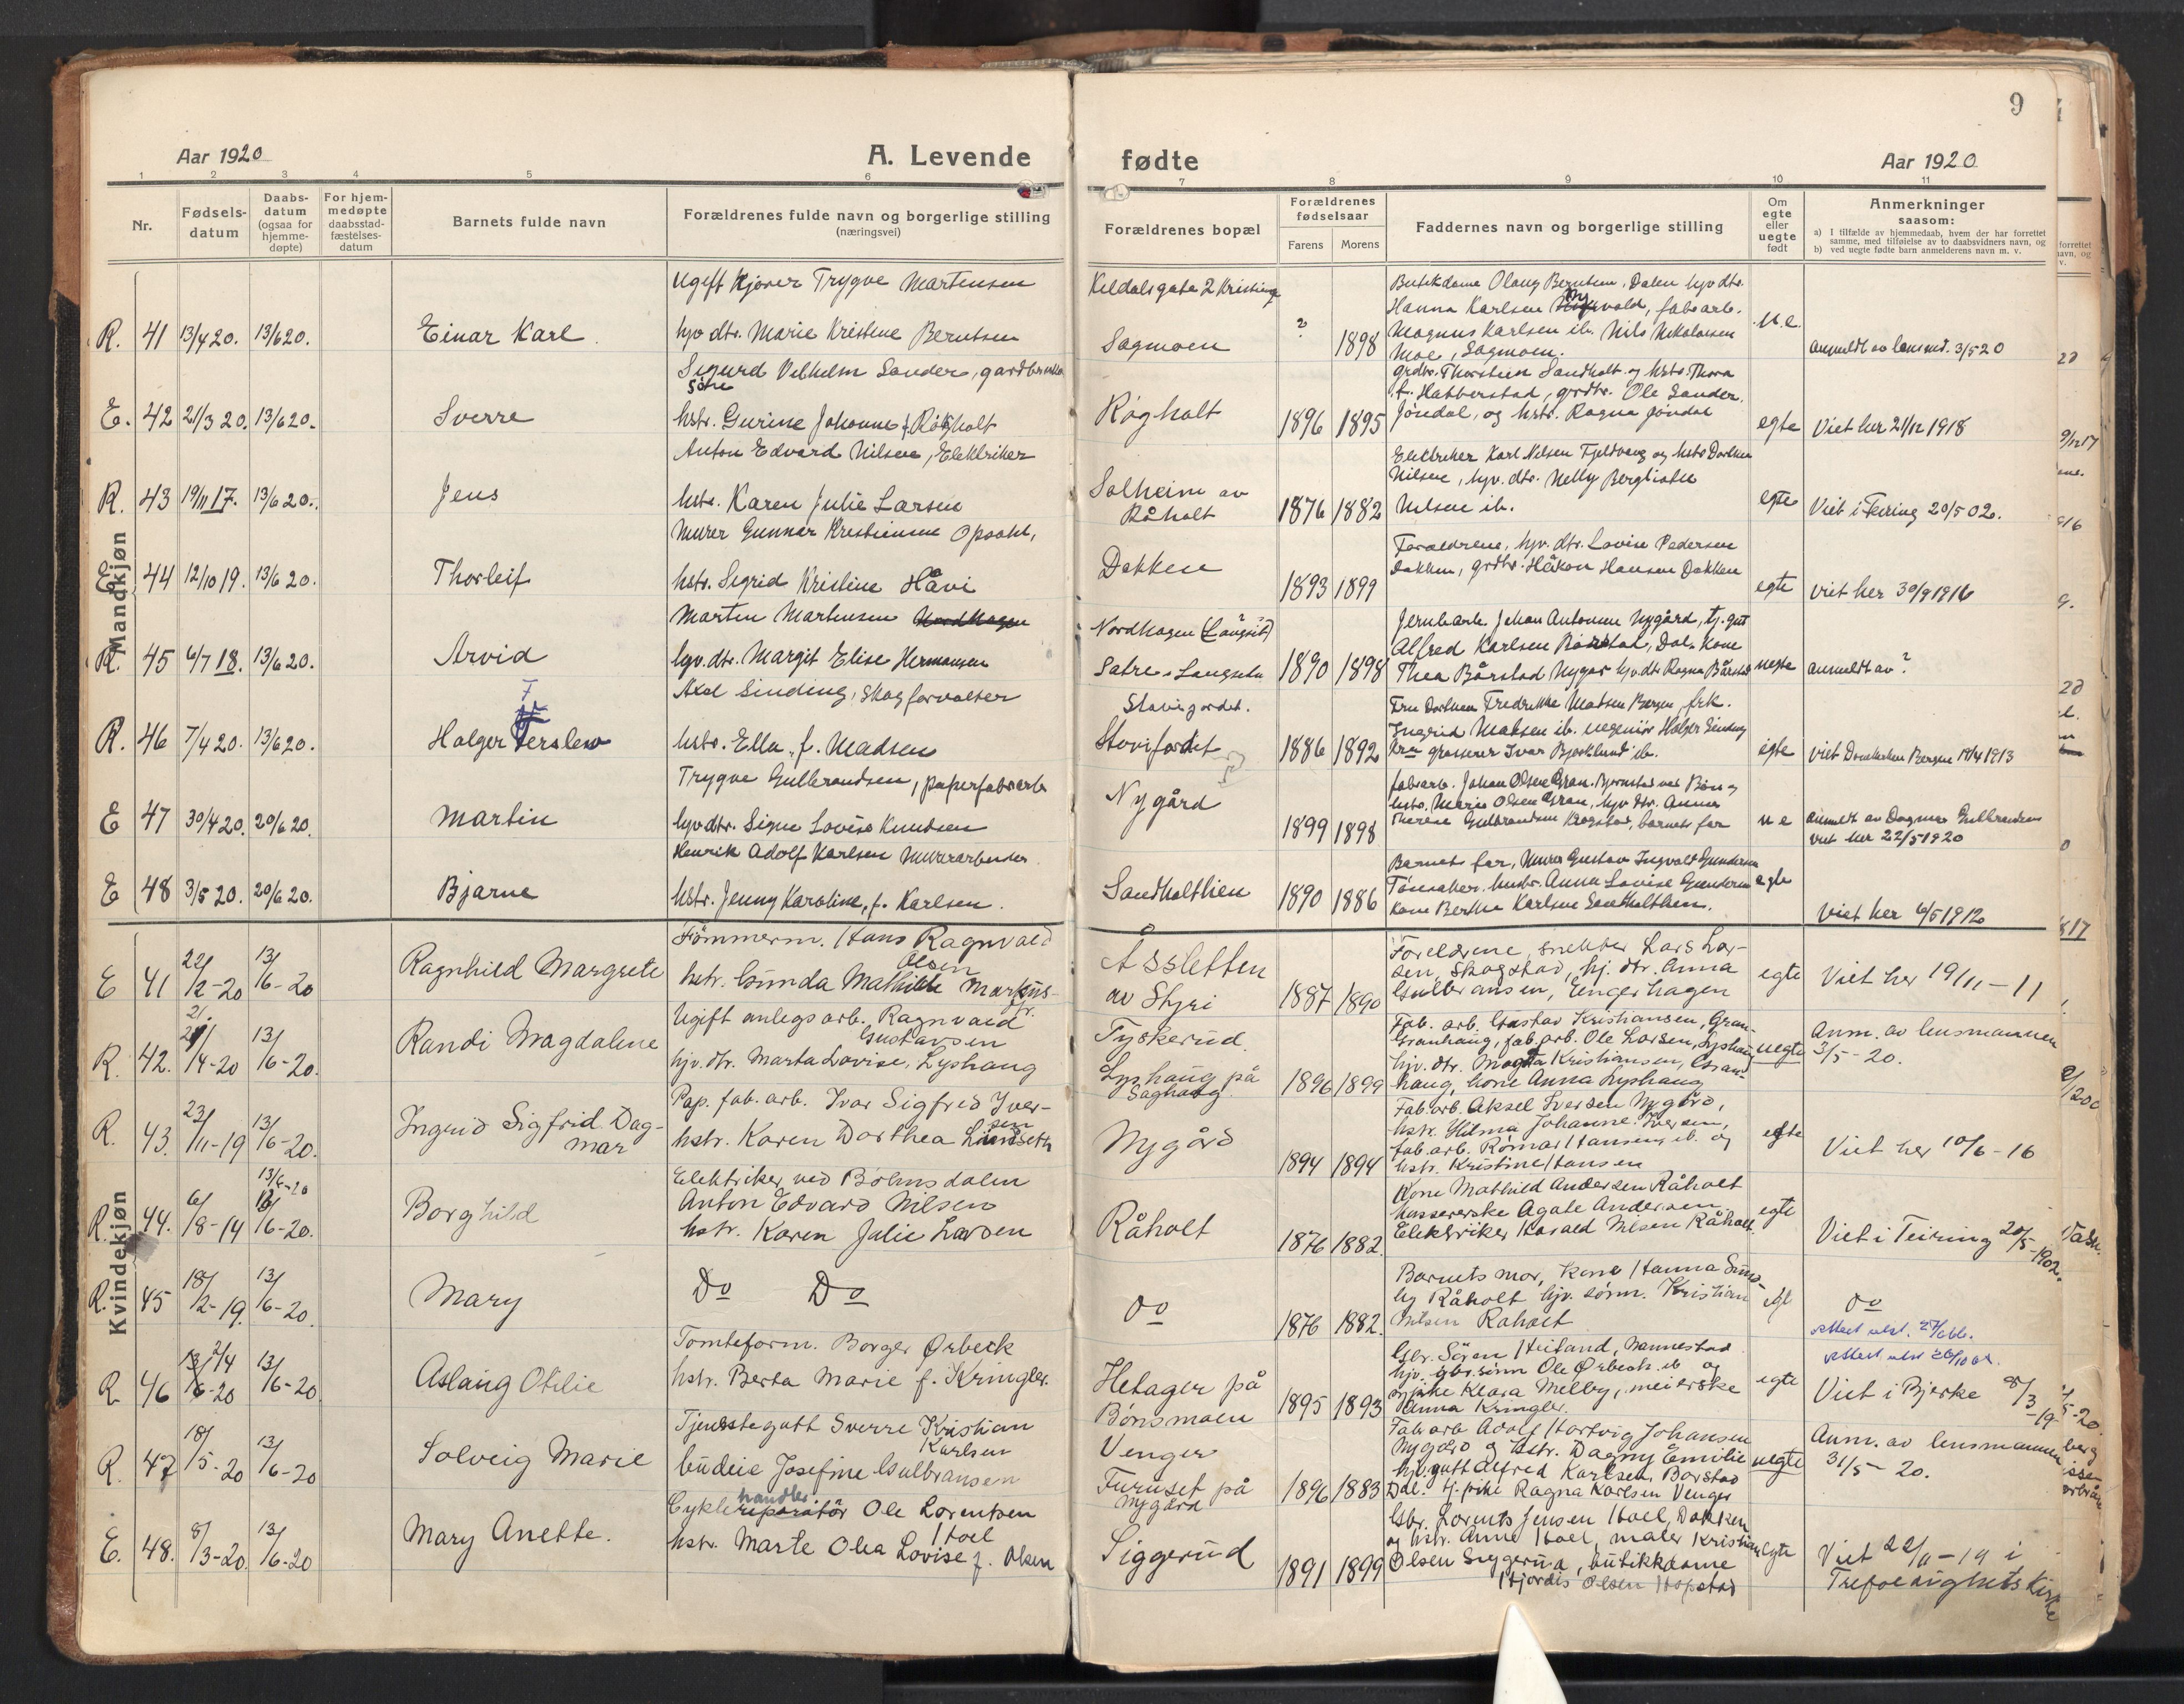 9
Aar 1920
A. Levende
fødte
Aar 1920
1 2 3 4 5 6 7 8 9 10 11
Nr.
Fødsels-
datum
Daabs-
datum
(ogsaa for
hjemme-
døpte)
For hjem-
medøpte
daabsstad-
fæstelses-
datum
Barnets fulde navn
Forældrenes fulde navn og borgerlige stilling
(næringsvei)
Forældrenes bopæl
Forældrenes
fødselsaar
Farens Morens
Faddernes navn og borgerlige stilling
Om
egte
eller
uegte
født
Anmerkninger
saasom:
a) I tilfælde av hjemmedaab, hvem der har forrettet
samme, med tilføielse av to daabsvidners navn, og
b) ved uegte fødte barn anmelderens navn m. v.
Mandkjøn
R. 41 13/4 20. 13/6 20.
Einar Karl
Ugift Kjører Trygve Martensen
hjv dtr. Marie Kristine Berntsen
Sagmoen
? 1898
Hanna Karlsen
Magnus Karlsen ib. Nils Nikolaisen
Moe, Sagmoen.
u.e.
anmeldt av lensmd. 3/5 20
E. 42 21/3 20. 13/6 20.
Sverre
Sigurd Vilhelm Sander, gardbruker
søn
hstr. Gurine Johanne f. Røgholt
Røgholt
1896 1895
grdbr. Thorstein Sandholt og hstr. Thora
f. Habberstad, grdbr. Ole Sander.
Jøndal, og hstr. Ragna Jøndal
egte
Viet her 21/12 1918
R. 43 19/11 17. 13/6 20.
Jens
Anton Edvard Nilsen, Elektriker
hstr. Karen Julie Larsen
Solheim av
Råholt
1876 1882
Elektriker Karl Nilsen Fjeldvang og hstr
Nilsen, hjv. dtr. Nelly
Nilsen ib.
egte
Viet i Feiring 20/5 02.
E. 44 12/10 19. 13/6 20.
Thorleif
Murer Gunnar Kristiansen Opsahl,
hstr. Sigrid Kristine Håvi
Dokken
1893 1899
Foraldrene, hjv. dtr. Lovise Pedersen
Dokken, grdbr. Håkon Hansen Dokken
egte
viet her 30/9 1916
R. 45 6/7 18. 13/6 20.
Arvid
Marten Martensen Nordhagen
hjv. dtr. Margit Elise Hermansen
Nordhagen (Langset)
Sætre, Langseth
1890 1898
Jernbarb. Johan Antonsen Nygård, tj. gut
Alfred Karlsen Bårstad, Dal. Kone
Thea Bårstad Nygår hjv dtr Ragna Bårstad
uegte
anmeldt av ?
R. 46 7/4 20. 13/6 20.
Holger Terslew
Axel Sinding, Skogforvalter
hstr. Ella, f. Madsen
Stavigordet.
Stovifordet
1886 1892
Fru Dorthea Fredrikke Madsen Bergen, frk.
Ingrid Madsen ib. ingeniør Holger Sinding
grosserer Ivar Bjørklund ib.
egte
viet Domkirken Bergen 19/4 1913
E 47 30/4 20. 20/6 20.
Martin
Trygve Gulbrandsen, papirfabrarb
hjv dtr. Signe Lovise Knudsen
Nygård
1899 1898
fabrarb. Johan Olsen Gran. Bjørnstad ved Bøn og
hstr. Marie Olsen Gran, hjv. dtr. Anna
Therese Gulbrandsen Bårstad, barnets far
u e
anmeldt av Dagmar Gulbrandsen
viet her 22/5 1920
E 48 3/5 20. 20/6 20.
Bjarne
Henrik Adolf Karlsen Murerarbeider
hstr. Jenny Karoline, f. Karlsen.
Sandholtlien
1890 1886
Barnets far, Murer Gustav Ingvald Gundersen
hustr. Anna Lovise Gundersen
Kone Berthe Karlsen Sandholtlien.
egte
viet her 6/5 1912
Kvindekjøn
E 41 22/2-20 13/6-20
Ragnhild Margrete
Tømmerm. Hans Ragnvald
Olsen
hstr. Gunda Mathilde Markus-
Åssletten
av Styri
1887 1890
Foreldrene, snekker Lars Lar-
sen, Skogstad, hj. dtr. Anna
Gulbransen, Engerhagen
egte
Viet her 19/11-11
R. 42. 21/4-20 13/6-20.
Randi Magdalene
Ugift anlegsarb. Ragnvald
Gustavsen
hjv. dtr. Marta Lovise, Lyshaug
Tyskerud.
Lyshaug på
Saghaug
1896 1899
Fab. arb. Gustav Kristiansen, Gran-
Granhaug, fab. arb. Ole Larsen, Lyshaug
hjv. dtr. Magda Kristiansen, Gran-
haug, kone Anna Lyshaug
uegte
Anm. av lensmannen
3/5-20.
R. 43. 23/11-19 13/6-20.
Ingrid Sigfrid Dag-
mar
Pap. fab. arb. Ivar Sigfred Iver-
sen
hstr. Karen Dorthea Lundseth
Nygård
1894 1894
Fab. arb. Aksel Iversen Nygård,
hstr. Hilma Johanne Iversen,
fab. arb. Rømar Hansen, ib. og
hstr. Kristine Hansen
egte
Viet her 10/6-16
R. 44. 6/8-14 13/6-20.
13/6-20
Borghild
Elektriker ved Bøhnsdalen
Anton Edvard Nilsen
hstr. Karen Julie Larsen
Råholt
1876 1882.
Kone Mathild Andersen Råholt
kassererske Agate Andersen
Elektriker Harald Nilsen Råholt.
egte
Viet i Feiring 20/5-1902.
R. 45 18/2-19. 13/6-20.
Mary
Do Do
Do
1876 1882.
Barnets mor, kone Hanna Sund-
by Råholt hjv. sønn. Kristian
Nilsen Råholt
egt
Do
Attest utst. 27/6 66.
R 46 2/4 13/6-20 13/6-20
Aslaug Otilie
Tomteform. Borger Ørbeck
hstr. Berta Marie f. Kringler.
Hetager på
Bönsmoen
1895 1893
Gbr. Søren Heiland, Nannestad
hjv. gbr. sønn Ole Ørbeck ib og
pike Klara Melby, meierske
Anna Kringler.
egte
Viet i Bjerke 8/3-19
R 47 18/5-20 13/6-20
Solveig Marie
Tjenestegutt Sverre Kristian
Karlsen
budeie Josefine Gulbransen
Venger
Furuset på
Nygård
1896 1883
Fab arb Adolf Hartvig Johansen
Nygård og hstr. Dagny Emilie
hjv. gutt Alfred Karlsen, Borstad
Dal. tj. pike Ragna Karlsen Venger
uegte
Anm. av lensmannen
31/5-20.
E. 48. 8/3-20. 13/6-20
Mary Anette.
handler
Cykle reparatör Ole Lorentsen
Hoel
hstr. Marte Olea Lovise f. Olsen
Siggerud
1891 1899
Gbr. Lorents Jensen Hoel, Dokken
og hstr. Anne Hoel, maler Kristian
Olsen Siggerud, butikkdame
Hjordis Olsen Hopstad
egte
Viet 22/11-19 i
Trefoldighetskirke